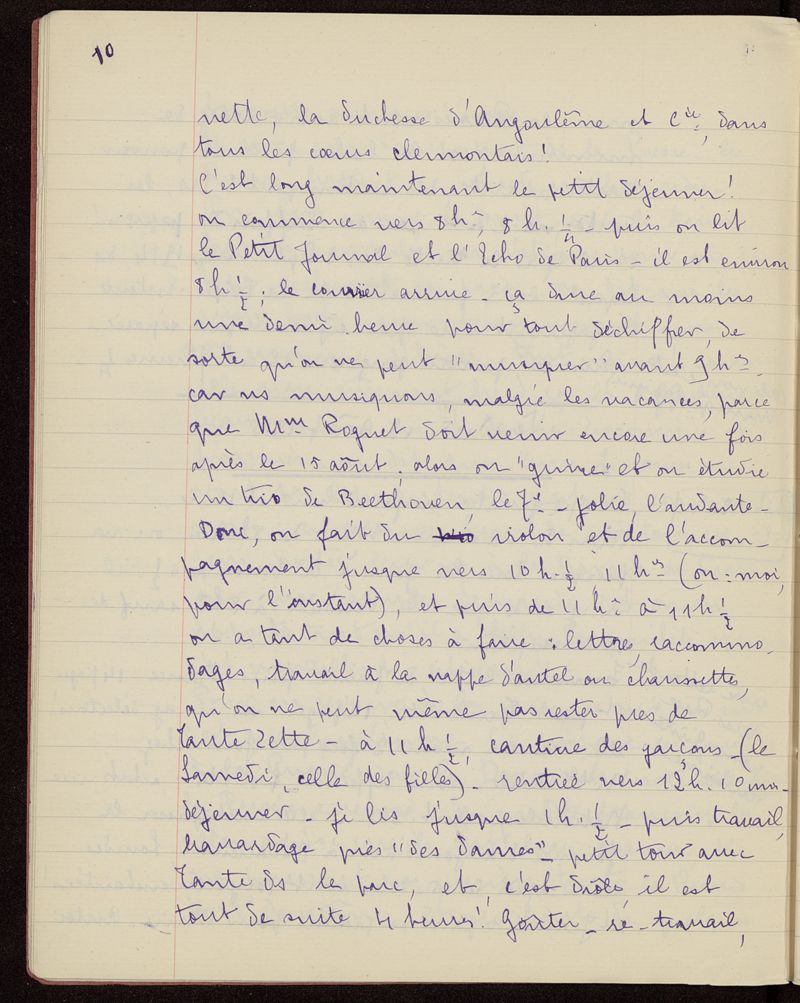 10
nette, la duchesse d'Angoulême et Cie, dans
tous les cœurs clermontais!
C'est long maintenant le petit déjeuner!
on commence vers 8hes, 8 h. 1/4 _ puis on lit
le Petit Journal et l'Echo de Paris _ il est environ
8h 1/2; le courrier arrive _ ça dure au moins
une demi-heure pour tout déchiffrer, de
sorte qu'on ne peut "musiquer" avant 9hes _
car ns musiquons, malgré les vacances, parce
que Mme Roguet doit venir encore une fois
après le 15 août; alors on "guine" et on étudie
un trio de Beethoven, le 7e _ jolie, l'andante _
Donc, on fait du violon et de l'accom-
pagnement jusque vers 10h. 1/2 11hes (on = moi,
pour l'instant), et puis de 11hes à 11h 1/2
on a tant de choses à faire : lettres, raccommo-
dages, travail à la nappe d'autel ou chaussettes,
qu'on ne peut même pas rester près de
Tante Zette _ à 11h 1/2, cantine des garçons _ (le
Samedi, celle des filles) _ rentrée vers 12h. 10 mn _
déjeuner _ je lis jusque 1h. 1/2 _ puis travail,
bavardage près "des dames" _ petit tour avec
Tante ds le parc, et, c'est drôle, il est
tout de suite 4 heures! Goûter _ re-travail,